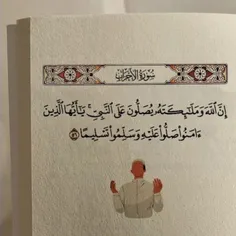 سُورَةُ الأَحْزَابِ
إِنَّ ٱللَّهَ وَمَلَٰٓئِكَتَهُۥ يُصَلُّونَ عَلَى ٱلنَّبِىِّ ۚ يَٰٓأَيُّهَا ٱلَّذِينَ
ءَامَنُوا۟ صَلُّوا۟ عَلَيْهِ وَسَلِّمُوا۟ تَسْلِيمًا ۝٥٦